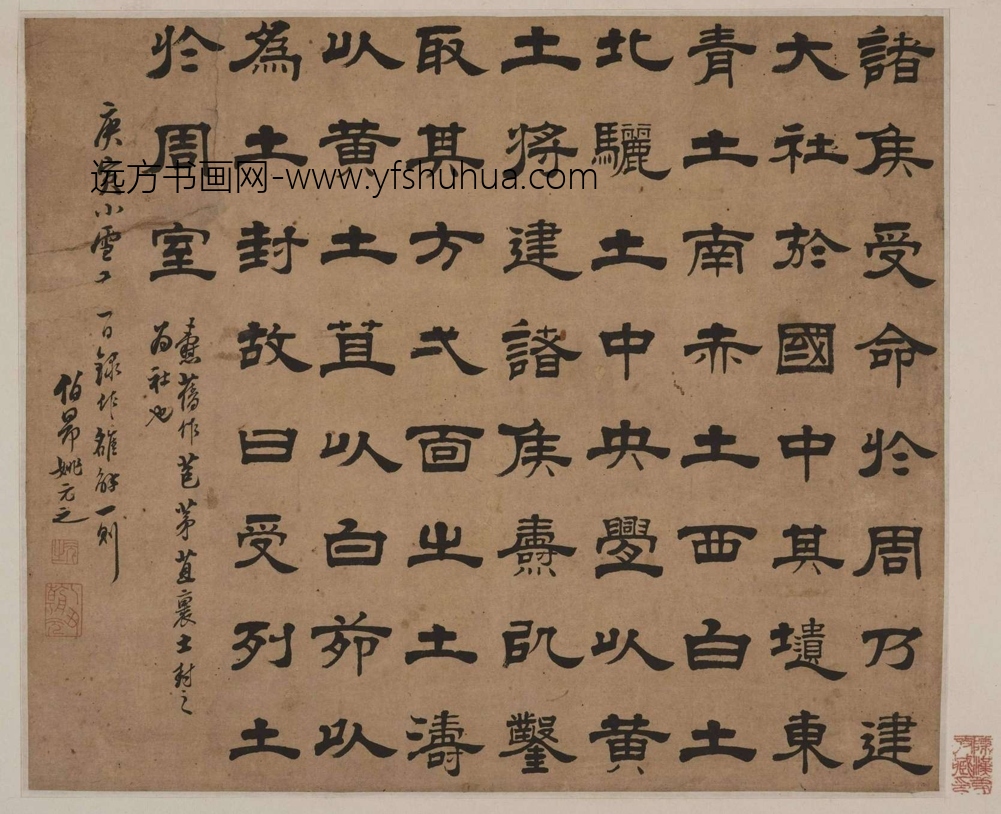 諸侯受命於周乃建
大社於國中其壝東
青土南赤土西白土
北驪土中央舋以黃
土將建諸侯燾取鑿
取其方弌面之土濤
以黃土苴以白茆以
為土封故曰受列土
於周室
燾舊作苞茅苴裹土封之
為社也
庚寅小雪 一日錄 雒解一則
伯昂姚元之
远方书画网-www.yfshuhua.com